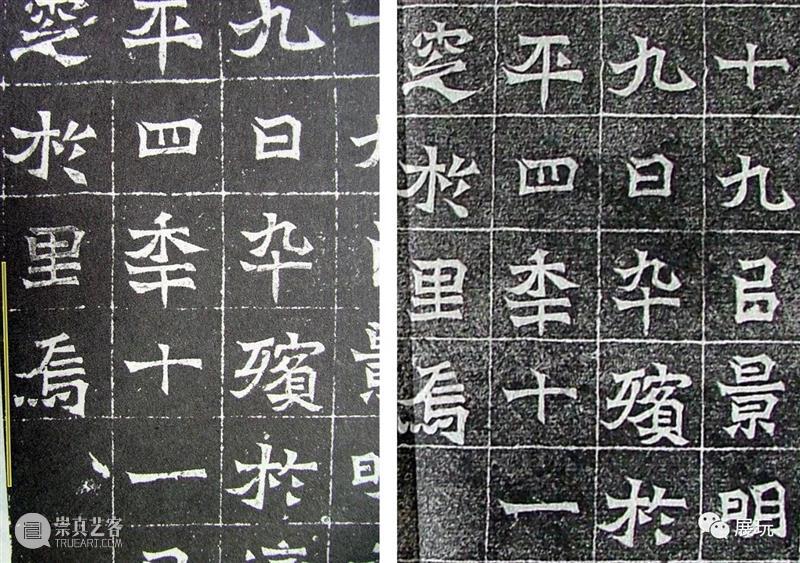 九日卆殯於
平四秊十一
窆於里焉
十九吕景明
九日卆殯於
平四秊十一
窆於里焉
崇真艺客
TRUEART.COM
展玩